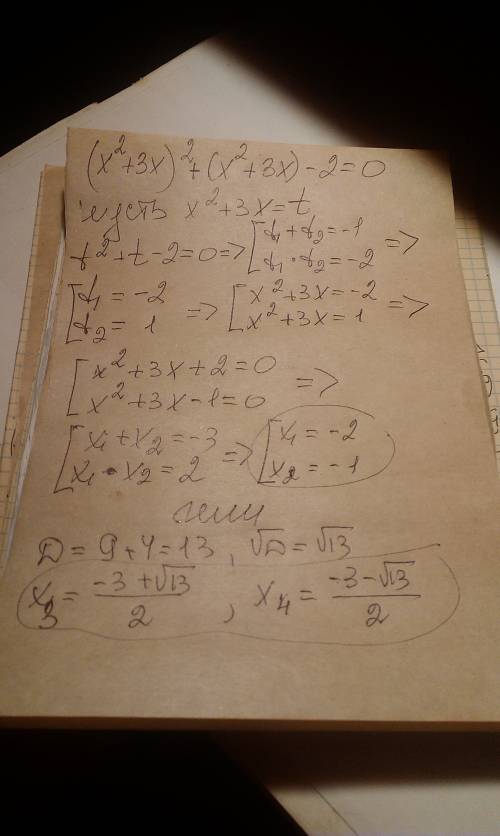 (x²+3x)²+(x²+3x)-2=0
пусть x²+3x=t
t²+t-2=0=>[t₁+t₂=-1 =>
[t₁·t₂=-2
[t₁=-2 => [x²+3x=-2 =>
[t₂=1 [x²+3x=1
[x²+3x+2=0 =>
[x²+3x-1=0
[x₁+x₂=-3 => [x₁=-2
[x₁·x₂=2 [x₂=-1
или
D=9+4=13, √D=√13
x₃=(-3+√13)/2, x₄=(-3-√13)/2